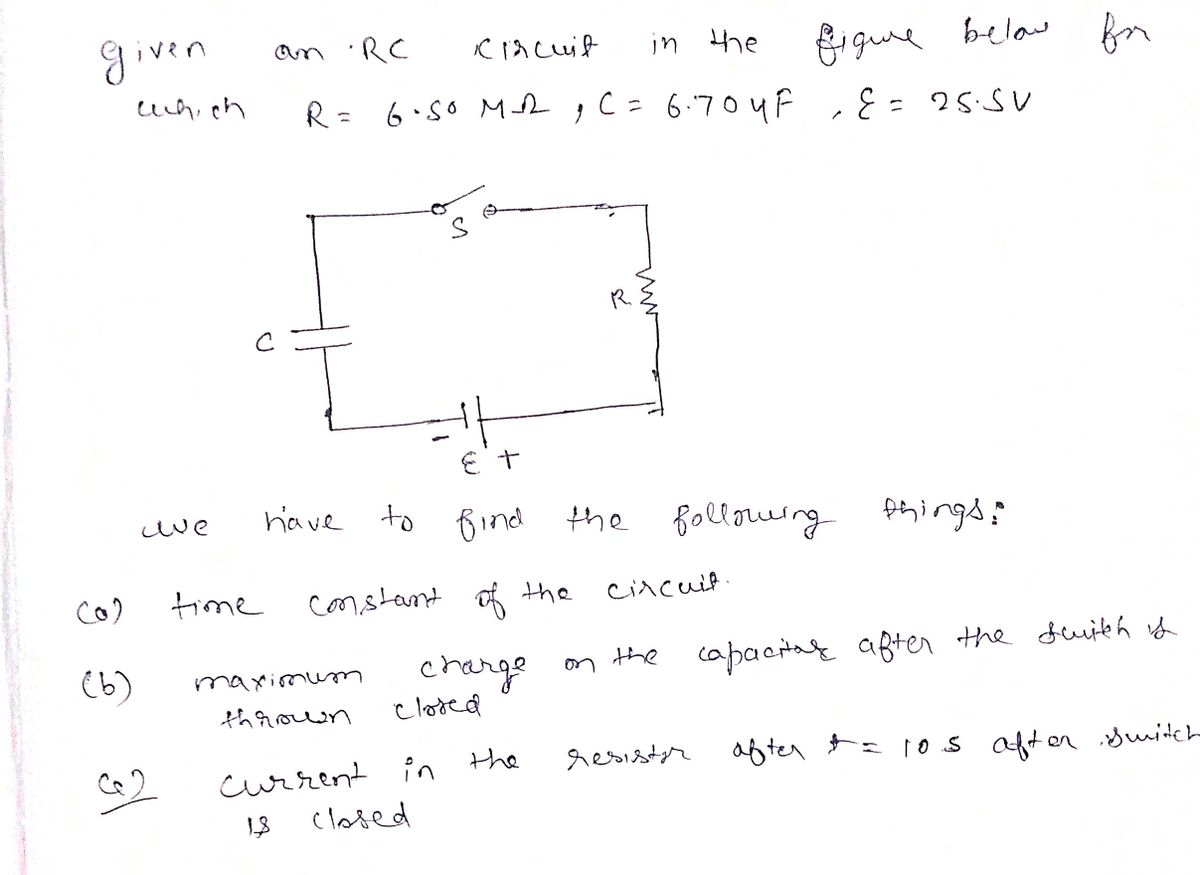 given an RC circuit in the figure below for
which R = 6.50 MΩ , C = 6.70 μF , Ɛ = 25.5V
S
R
C
- Ɛ +
we have to find the following things:
(a) time constant of the circuit.
(b) maximum charge on the capacitor after the switch is
thrown closed
(c) current in the resistor after t = 10 s after switch
is closed